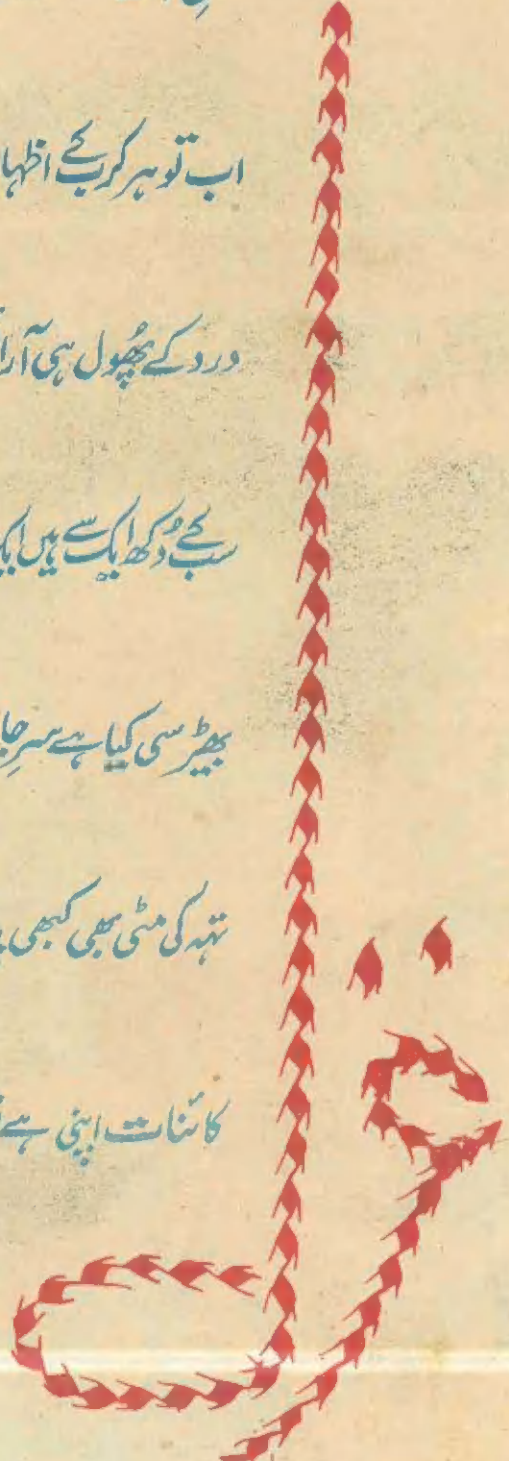 اب تو ہر کرب کے اظہا
درد کے پھُول ہی آرا
سب کے دُکھ ایک سے ہیں ایک
بھیڑ سی کیا ہے سرِ جا
تہہ کی مٹی بھی کبھی
کائنات اپنی ہے